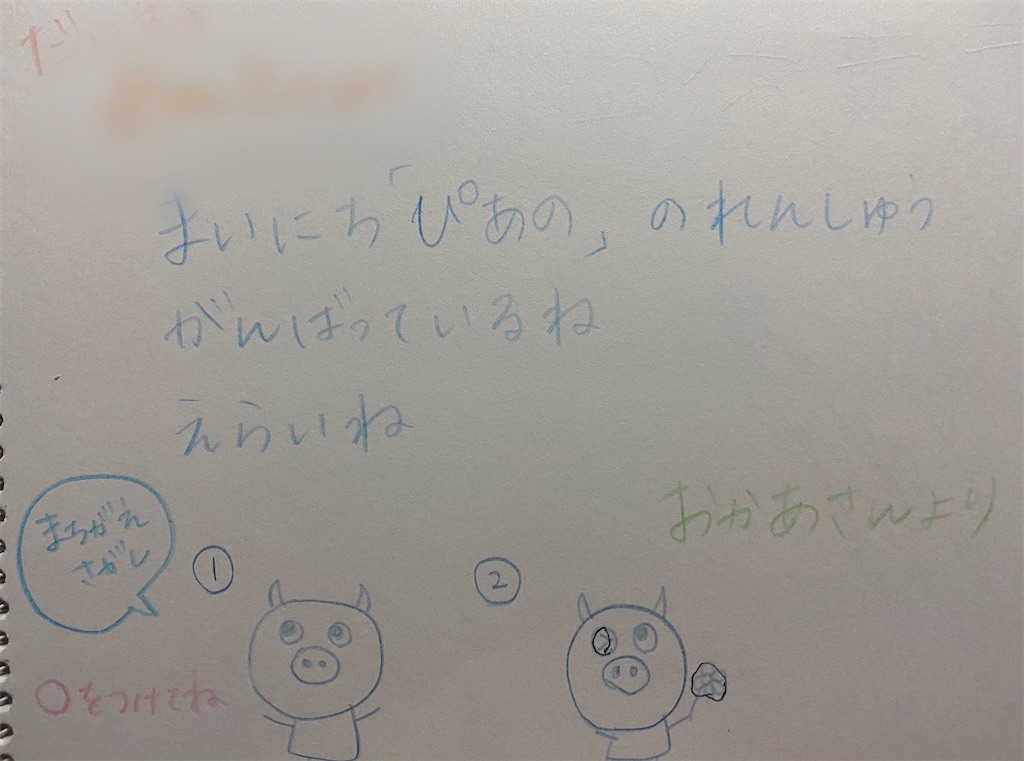 まいにち「ぴあの」のれんしゅう
がんばっているね
えらいね
おかあさんより
まちがえ
さがし
①
②
○をつけてね